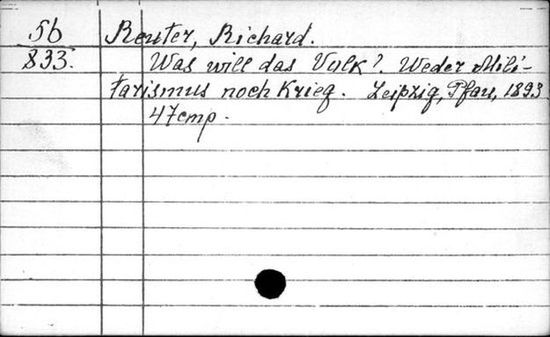 56 Reuter, Richard.
833. Was will das Vulk? Weder Mili-
tarismus noch Krieg. Leipzig, Pfau, 1893
47 cmp.